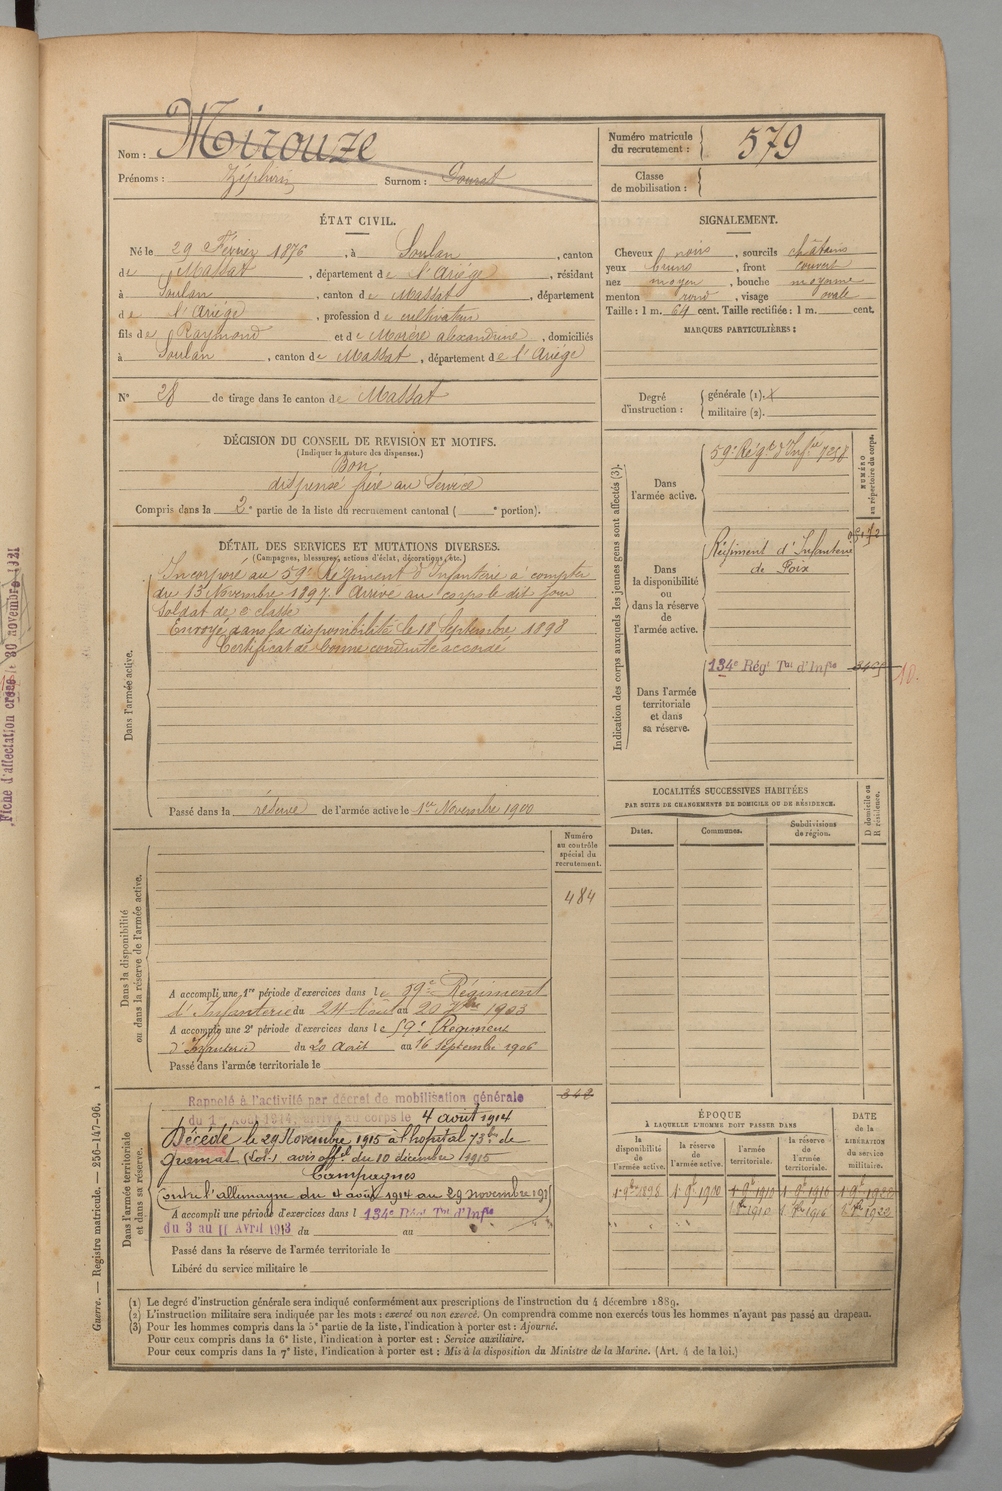 Fiche d'affectation créée le 30 novembre 1921
Nom : Mirouze
Prénoms : Zéphirin Surnom : Gourat
Numéro matricule
du recrutement : 579
Classe
de mobilisation :
ÉTAT CIVIL.
Né le 29 Février 1876, à Soulan, canton
de Massat, département de l'Ariége, résidant
à Soulan, canton de Massat, département
de l'Ariége, profession de cultivateur
fils de Raymond et de Morère alexandrine, domiciliés
à Soulan, canton de Massat, département de l'Ariége
N° 28 de tirage dans le canton de Massat
SIGNALEMENT.
Cheveux noirs, sourcils châtains
yeux bruns, front couvert
nez moyen, bouche moyenne
menton rond, visage ovale
Taille : 1 m. 64 cent. Taille rectifiée : 1 m. cent.
MARQUES PARTICULIÈRES :
Degré
d'instruction :
générale (1).
militaire (2).
DÉCISION DU CONSEIL DE REVISION ET MOTIFS.
(Indiquer la nature des dispenses.)
Bon
dispensé frère au Service
Compris dans la 2e partie de la liste du recrutement cantonal ( e portion).
DÉTAIL DES SERVICES ET MUTATIONS DIVERSES.
(Campagnes, blessures, actions d'éclat, décorations, etc.)
Dans l'armée active.
Incorporé au 59e Régiment d'Infanterie à compter
du 13 Novembre 1897. Arrivé au corps le dit jour
Soldat de 2e classe
Envoyé dans la disponibilité le 18 Septembre 1898
Certificat de bonne conduite accordé
Passé dans la réserve de l'armée active le 1er Novembre 1900
Indication des corps auxquels les jeunes gens sont affectés (3).
NUMÉRO
au répertoire du corps.
Dans
l'armée active.
59e Régt d'Infie
Dans
la disponibilité
ou
dans la réserve
de
l'armée active.
Régiment d'Infanterie
de Foix
Dans l'armée
territoriale
et dans
sa réserve.
134e Régt Tal d'Infie
10.
LOCALITÉS SUCCESSIVES HABITÉES
PAR SUITE DE CHANGEMENTS DE DOMICILE OU DE RÉSIDENCE.
Dates.
Communes.
Subdivisions
de région.
D domicile ou
R résidence.
Dans la disponibilité
ou dans la réserve de l'armée active.
Numéro
au contrôle
spécial du
recrutement.
484
A accompli une 1re période d'exercices dans le 59e Régiment
d'Infanterie du 24 Août au 20 7bre 1903
A accompli une 2e période d'exercices dans le 59e Régiment
d'Infanterie du 20 Août au 16 Septembre 1906
Passé dans l'armée territoriale le
Dans l'armée territoriale
et dans sa réserve.
Rappelé à l'activité par décret de mobilisation générale
du 1er Août 1914, arrivé au corps le 4 août 1914
Décédé le 29 Novembre 1915 à l'hopital 73bis de
Gramat (Lot) avis offel du 10 décembre 1915
Campagnes
Contre l'allemagne du 4 août 1914 au 29 novembre 1915
A accompli une période d'exercices dans l 134e Régt Tal d'Infie
du 3 au 11 Avril 1913 du au
Passé dans la réserve de l'armée territoriale le
Libéré du service militaire le
ÉPOQUE
À LAQUELLE L'HOMME DOIT PASSER DANS
la
disponibilité
de
l'armée active.
la réserve
de
l'armée active.
l'armée
territoriale.
la réserve
de
l'armée
territoriale.
DATE
de la
LIBÉRATION
du service
militaire.
1er 9bre 1898 1er 9bre 1900 1er 9bre 1910 1er 9bre 1916
Guerre. — Registre matricule. — 256-147-96. 1
(1) Le degré d'instruction générale sera indiqué conformément aux prescriptions de l'instruction du 4 décembre 1889.
(2) L'instruction militaire sera indiquée par les mots : exercé ou non exercé. On comprendra comme non exercés tous les hommes n'ayant pas passé au drapeau.
(3) Pour les hommes compris dans la 5e partie de la liste, l'indication à porter est : Ajourné.
Pour ceux compris dans la 6e liste, l'indication à porter est : Service auxiliaire.
Pour ceux compris dans la 7e liste, l'indication à porter est : Mis à la disposition du Ministre de la Marine. (Art. 4 de la loi.)